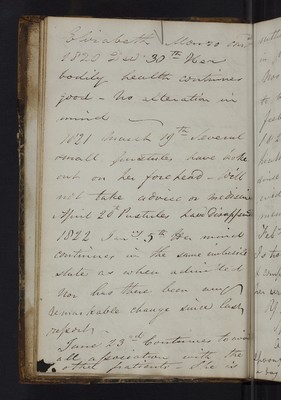 Elizabeth
1820 30th Her
bodily health continues
good - No alteration in
mind
1821 March 19th Several
small pustules have broke
out on her forehead - Will
not take advice or medicine
April 20th Pustules have disappeared
1822 Jany 5th Her mind
continues in the same imbecile
state as when admitted
nor has there been any
remarkable change since last
report
June 23rd Continues to avoid
all association with the
other patients - She is